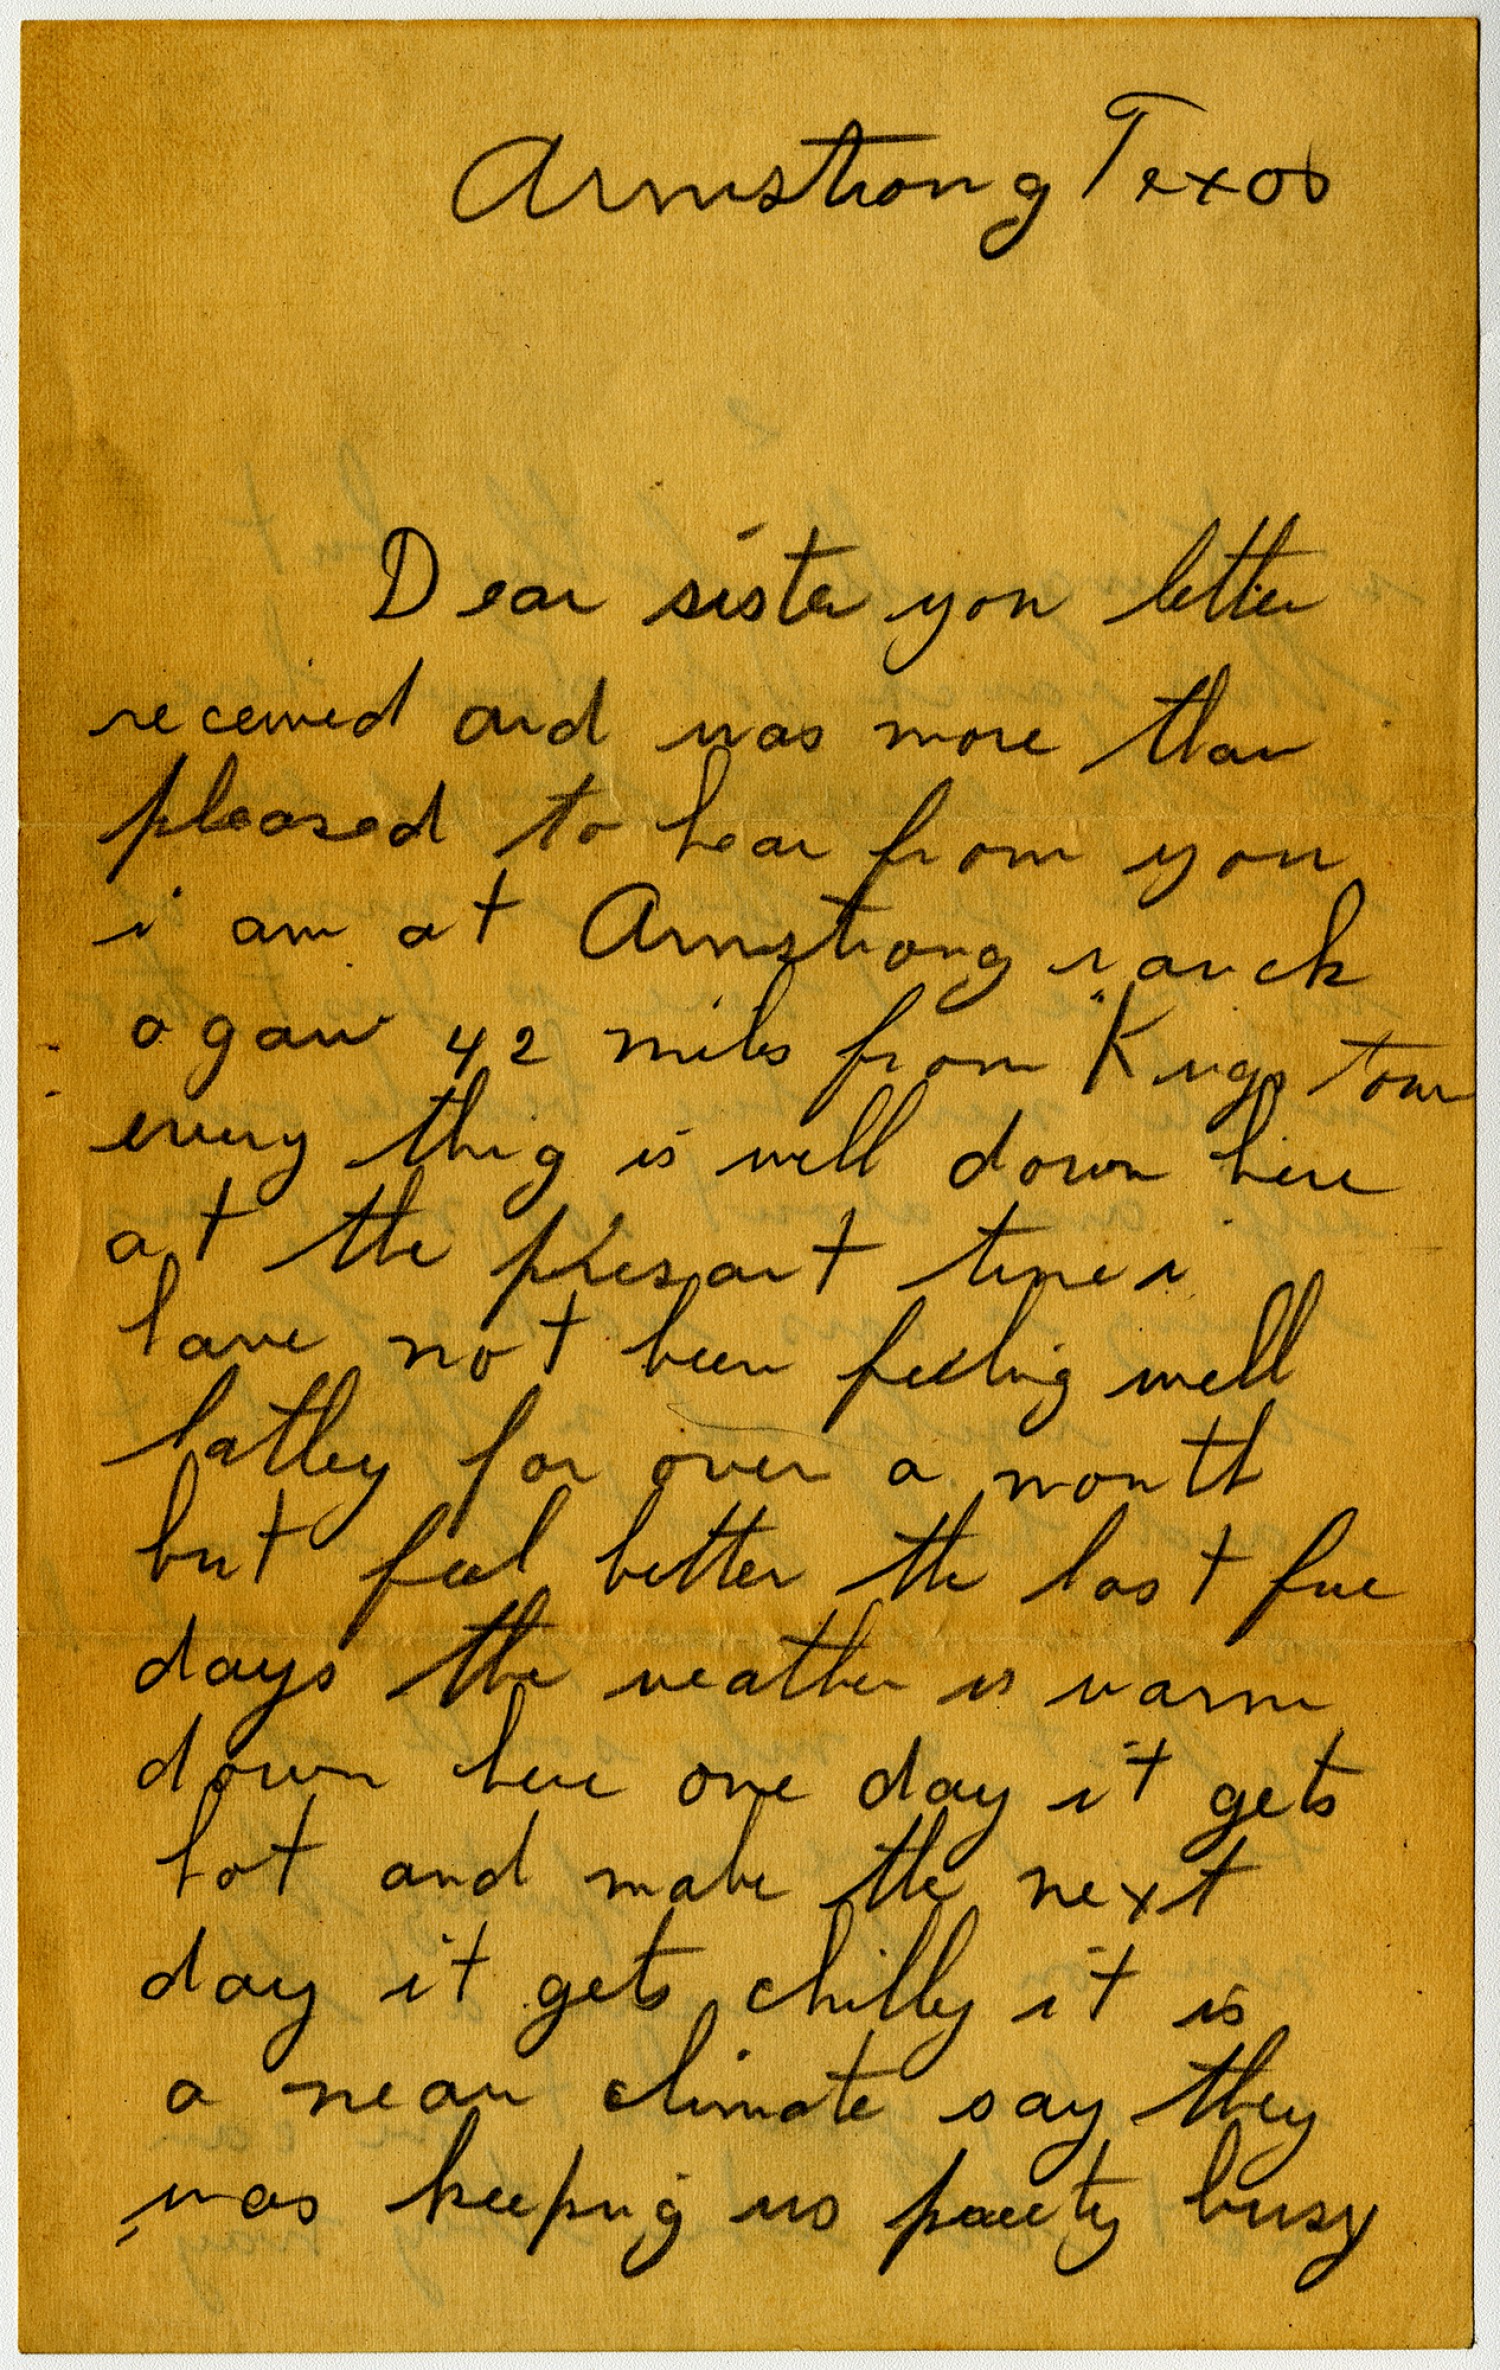 Armstrong Texas
Dear sister you letter
received and was more than
pleased to hear from you
i am at Armstrong ranch
agan 42 miles from Kings town
every thig is well down here
at the presant time i
have not been feeling well
latley for over a month
but feel better the last fue
days the weather is warm
down here one day it gets
hot and mabe the next
day it gets chilly it is
a climate say they
was keeping us busy